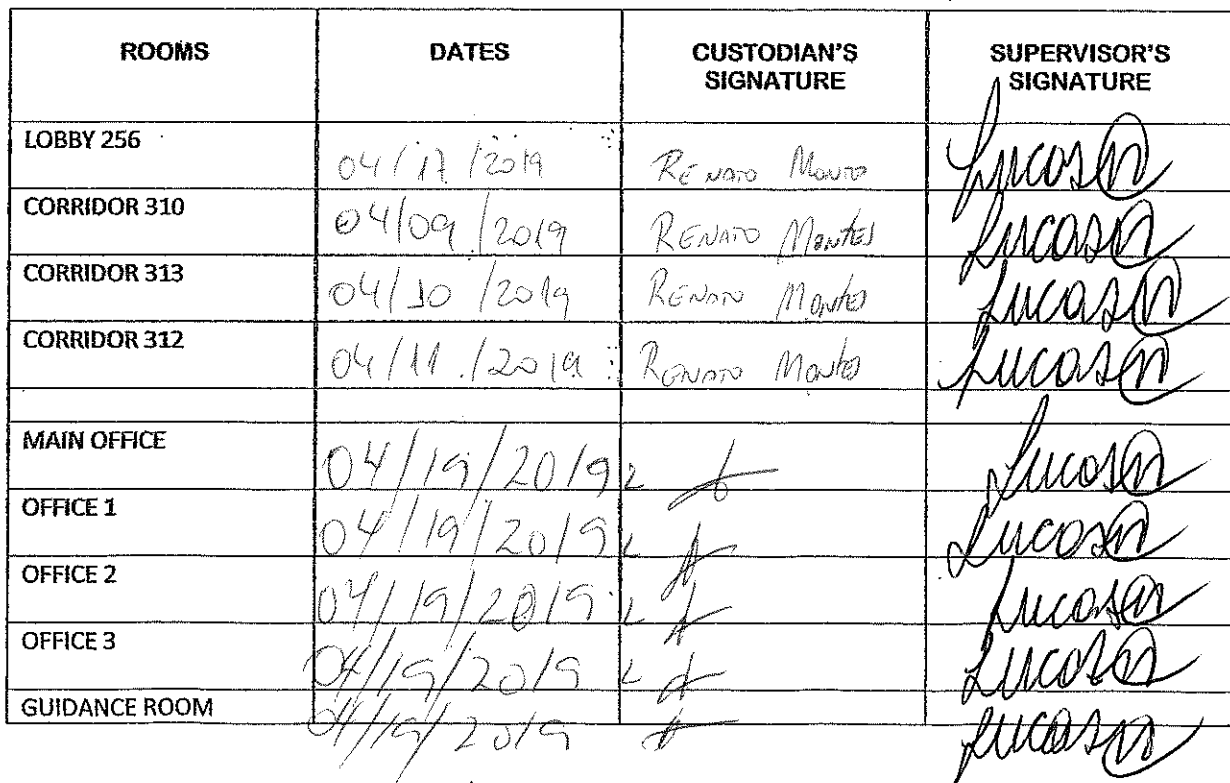 ROOMS DATES CUSTODIAN'S SUPERVISOR'S
SIGNATURE SIGNATURE
LOBBY 256 04/17/2019 RENATO Montes Lucas
CORRIDOR 310 04/09/2019 RENATO Montes Lucas
CORRIDOR 313 04/10/2019 RENATO Montes Lucas
CORRIDOR 312 04/11/2019 RENATO Montes Lucas
MAIN OFFICE 04/19/2019 Lucas
OFFICE 1 04/19/2019 Lucas
OFFICE 2 04/19/2019 Lucas
OFFICE 3 04/19/2019 Lucas
GUIDANCE ROOM 04/19/2019 Lucas